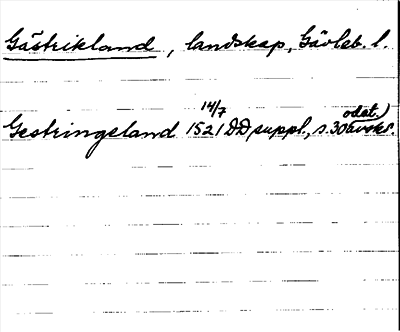 Gästrikland, landskap, Gävleb. l.
Gestringeland 14/7 1521 DD suppl., s. 30 odat.) avskr.